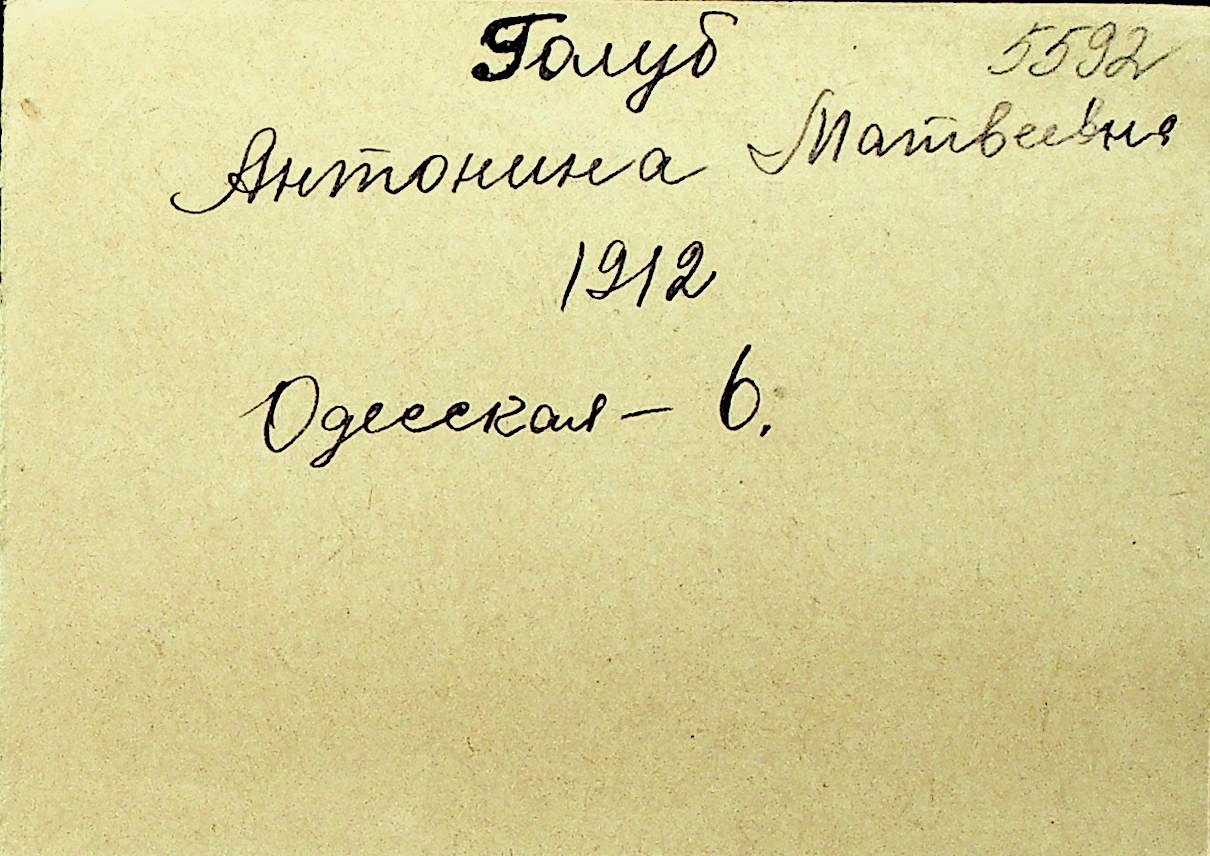 Голуб 5592
Антонина Матвеевна
1912
Одесская - 6.